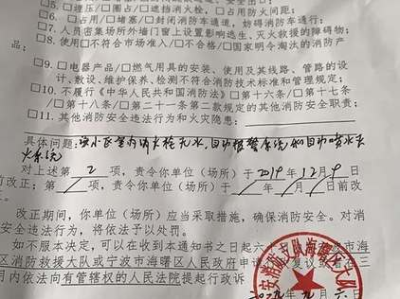 □5. 埋压/圈占/遮挡消火栓、占用防火间距;
□6. □占用/□堵塞/□封闭消防车通道,妨碍消防车通行;
□7. 人员密集场所外墙门窗上设置影响逃生、灭火救援的障碍物;
□8. 使用□不符合市场准入/□不合格/□国家明令淘汰的消防产
品;
□9. □电器产品/□燃气用具的安装、使用及其线路、管路的设
计、敷设、维护保养、检测不符合消防技术标准和管理规定;
□10. 不履行《中华人民共和国消防法》□第十六条/□第十七条
/□第十八条/□第二十一条第二款规定的其他消防安全职责;
□11. 其他消防安全违法行为和火灾隐患:
具体问题: 小区室内消火栓无水,自动报警系统和自动喷水灭
火系统
对上述第 2 项,责令你单位(场所)于 2019年12月9日
前改正;第 / 项,责令你单位(场所)于 / 年 / 月 / 日前改
正。
改正期间,你单位(场所)应当采取措施,确保消防安全。对消
防安全违法行为,将依法予以处罚。
如不服本决定,可以在收到本通知书之日起六十日内向 宁波市海
区消防救援大队或宁波市海曙区人民政府申请行政复议或者三
月内依法向有管辖权的人民法院提起行政诉